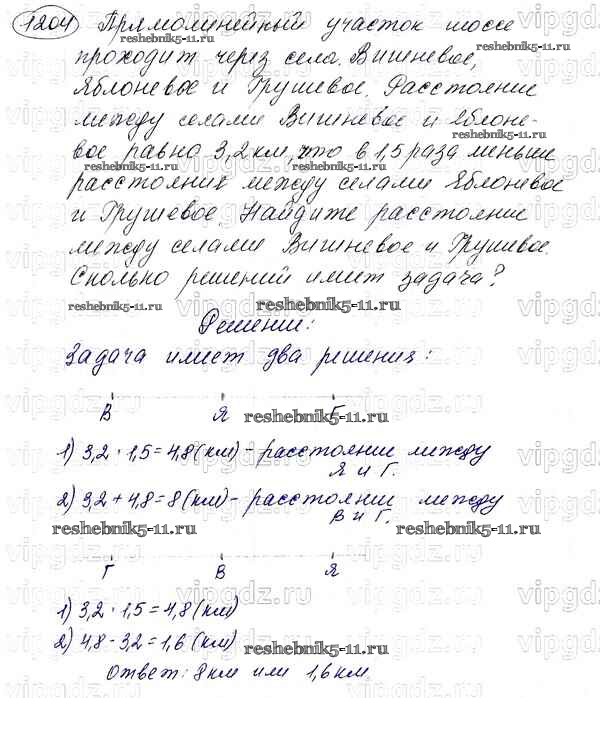 1204 Прямолинейный участок шоссе
проходит через села Вишневое,
Яблоневое и Грушевое. Расстояние
между селами Вишневое и Яблоне-
вое равно 3,2 км, что в 1,5 раза меньше
расстояния между селами Яблоневое
и Грушевое. Найдите расстояние
между селами Вишневое и Грушевое.
Сколько решений имеет задача?
reshebnik5-11.ru
Решение:
Задача имеет два решения:
В Я Г
reshebnik5-11.ru
1) 3,2 · 1,5 = 4,8 (км) - расстояние между
Я и Г.
2) 3,2 + 4,8 = 8 (км) - расстояние между
В и Г.
reshebnik5-11.ru reshebnik5-11.ru
Г В Я
1) 3,2 · 1,5 = 4,8 (км)
2) 4,8 - 3,2 = 1,6 (км)
reshebnik5-11.ru
Ответ: 8 км или 1,6 км